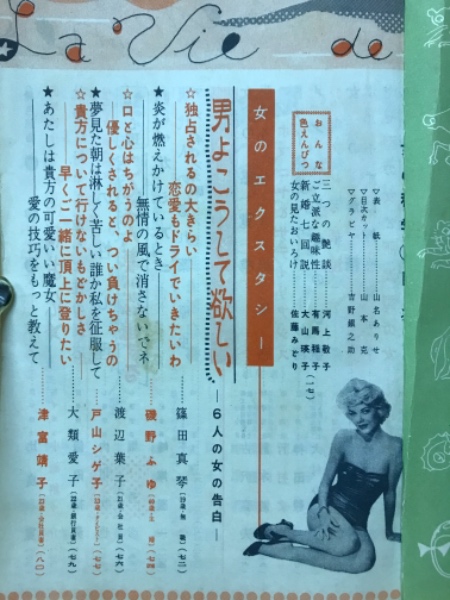 La Vie de
▽表紙……山名ありせ
▽目次カット……山本克
▽グラビヤ……吉野蘭之助
おんな色えんぴつ
三つの艶談……河上敬子
ご立派な趣味性……有馬稲子
新婚七回説……大山瑛子
女の見たおいろけ……佐藤みどり
(一七)
女のエクスタシー
男よこうして欲しい
―6人の女の告白―
☆独占されるの大きらい
恋愛もドライでいきたいわ……篠田真琴
(七二)
★炎が燃えかけているとき
無情の風で消さないでネ……磯野ふゆ
(七四)
☆口と心はちがうのよ
優しくされると、つい負けちゃうの……渡辺葉子
(七六)
★夢見た朝は淋しく苦しい誰か私を征服して……戸山シゲ子
(七七)
☆貴方について行けないもどかしさ
早くご一緒に頂上に登りたい……大類愛子
(七九)
★あたしは貴方の可愛いい魔女
愛の技巧をもっと教えて……津富靖子
(八〇)